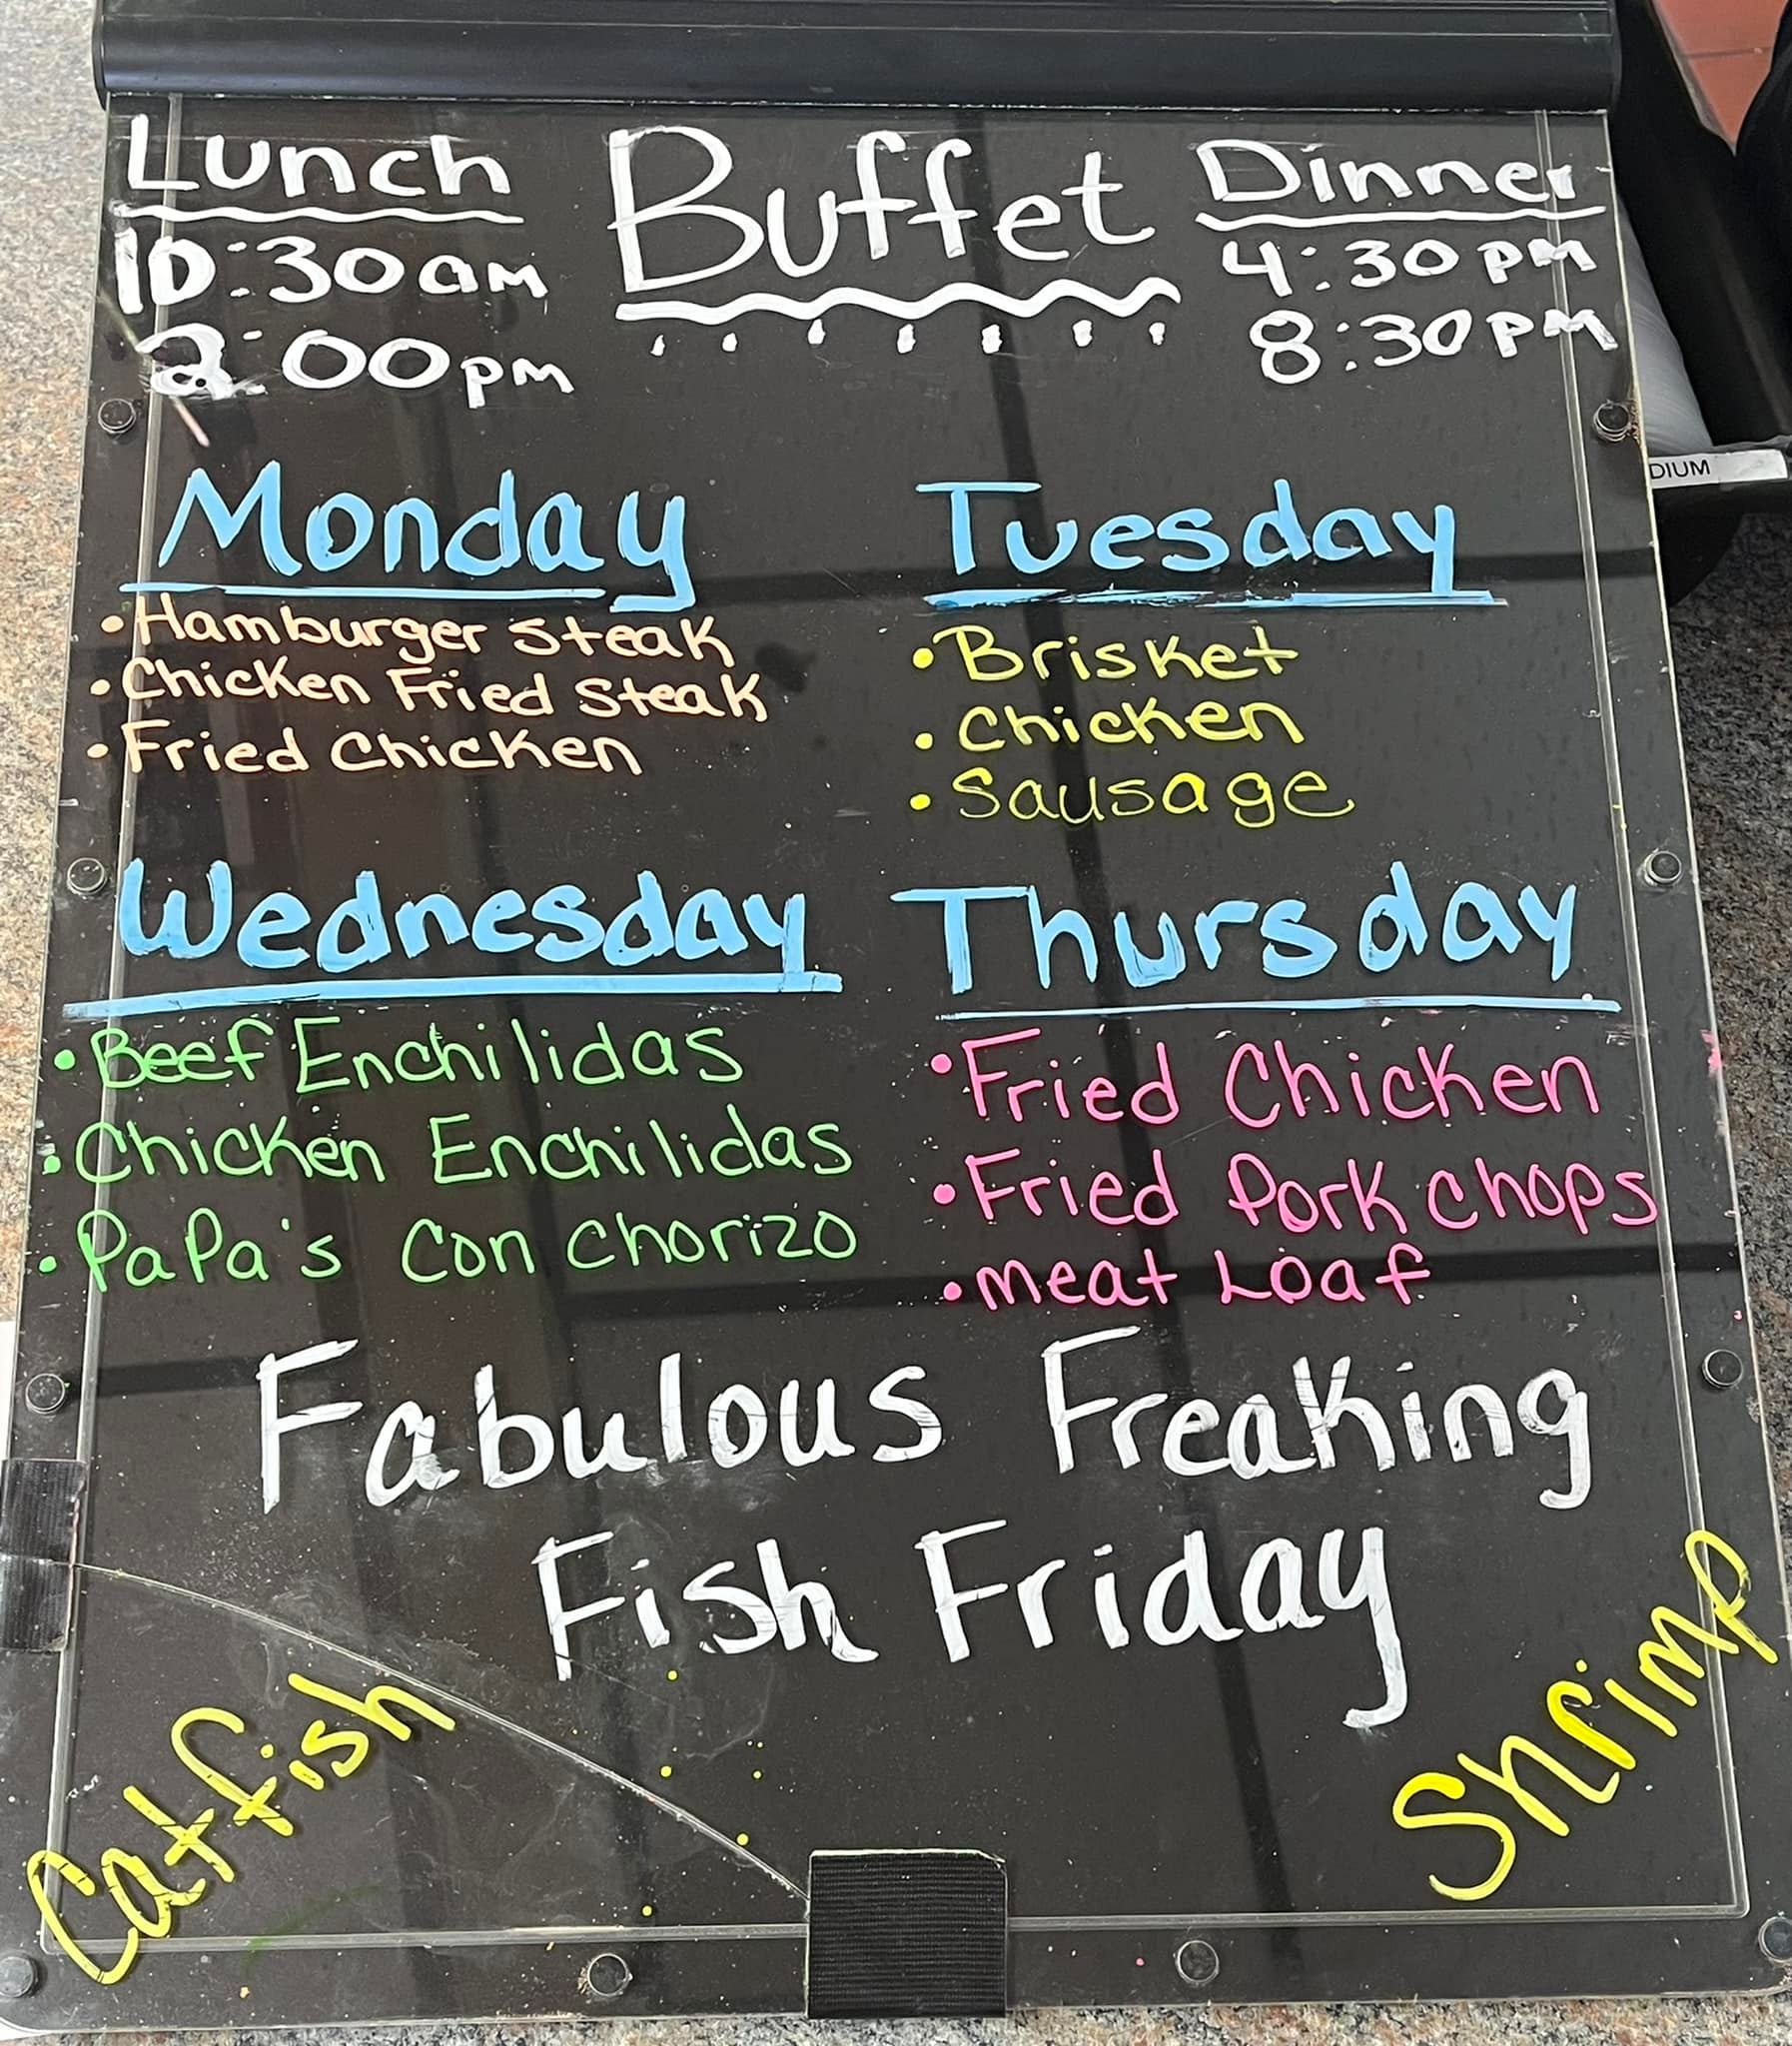 Lunch
10:30am
2:00pm
Buffet
Dinner
4:30pm
8:30pm
Monday
•Hamburger Steak
•Chicken Fried Steak
•Fried Chicken
Tuesday
•Brisket
•Chicken
•Sausage
Wednesday
•Beef Enchilidas
•Chicken Enchilidas
•PaPa's Con Chorizo
Thursday
•Fried Chicken
•Fried Pork chops
•meat Loaf
Fabulous Freaking
Fish Friday
Catfish
Shrimp
DIUM